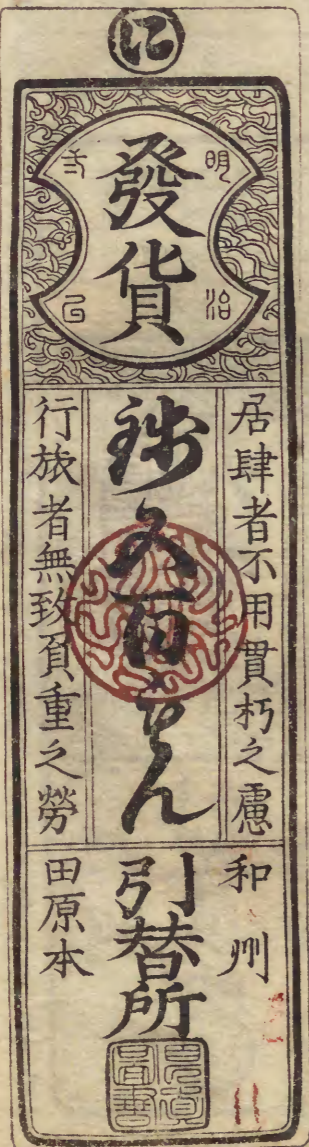 に
發貨
明治
己
居肆者不用貫朽之慮
銭五百もん
行旅者無致負重之勞
和州
引替所
田原本